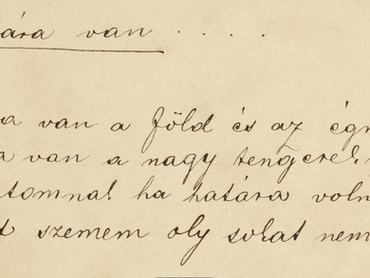 ára van . . . .
a van a föld és az ég
a van a nagy tengerek
tomnak ha határa voln
t szemem oly sokat nem